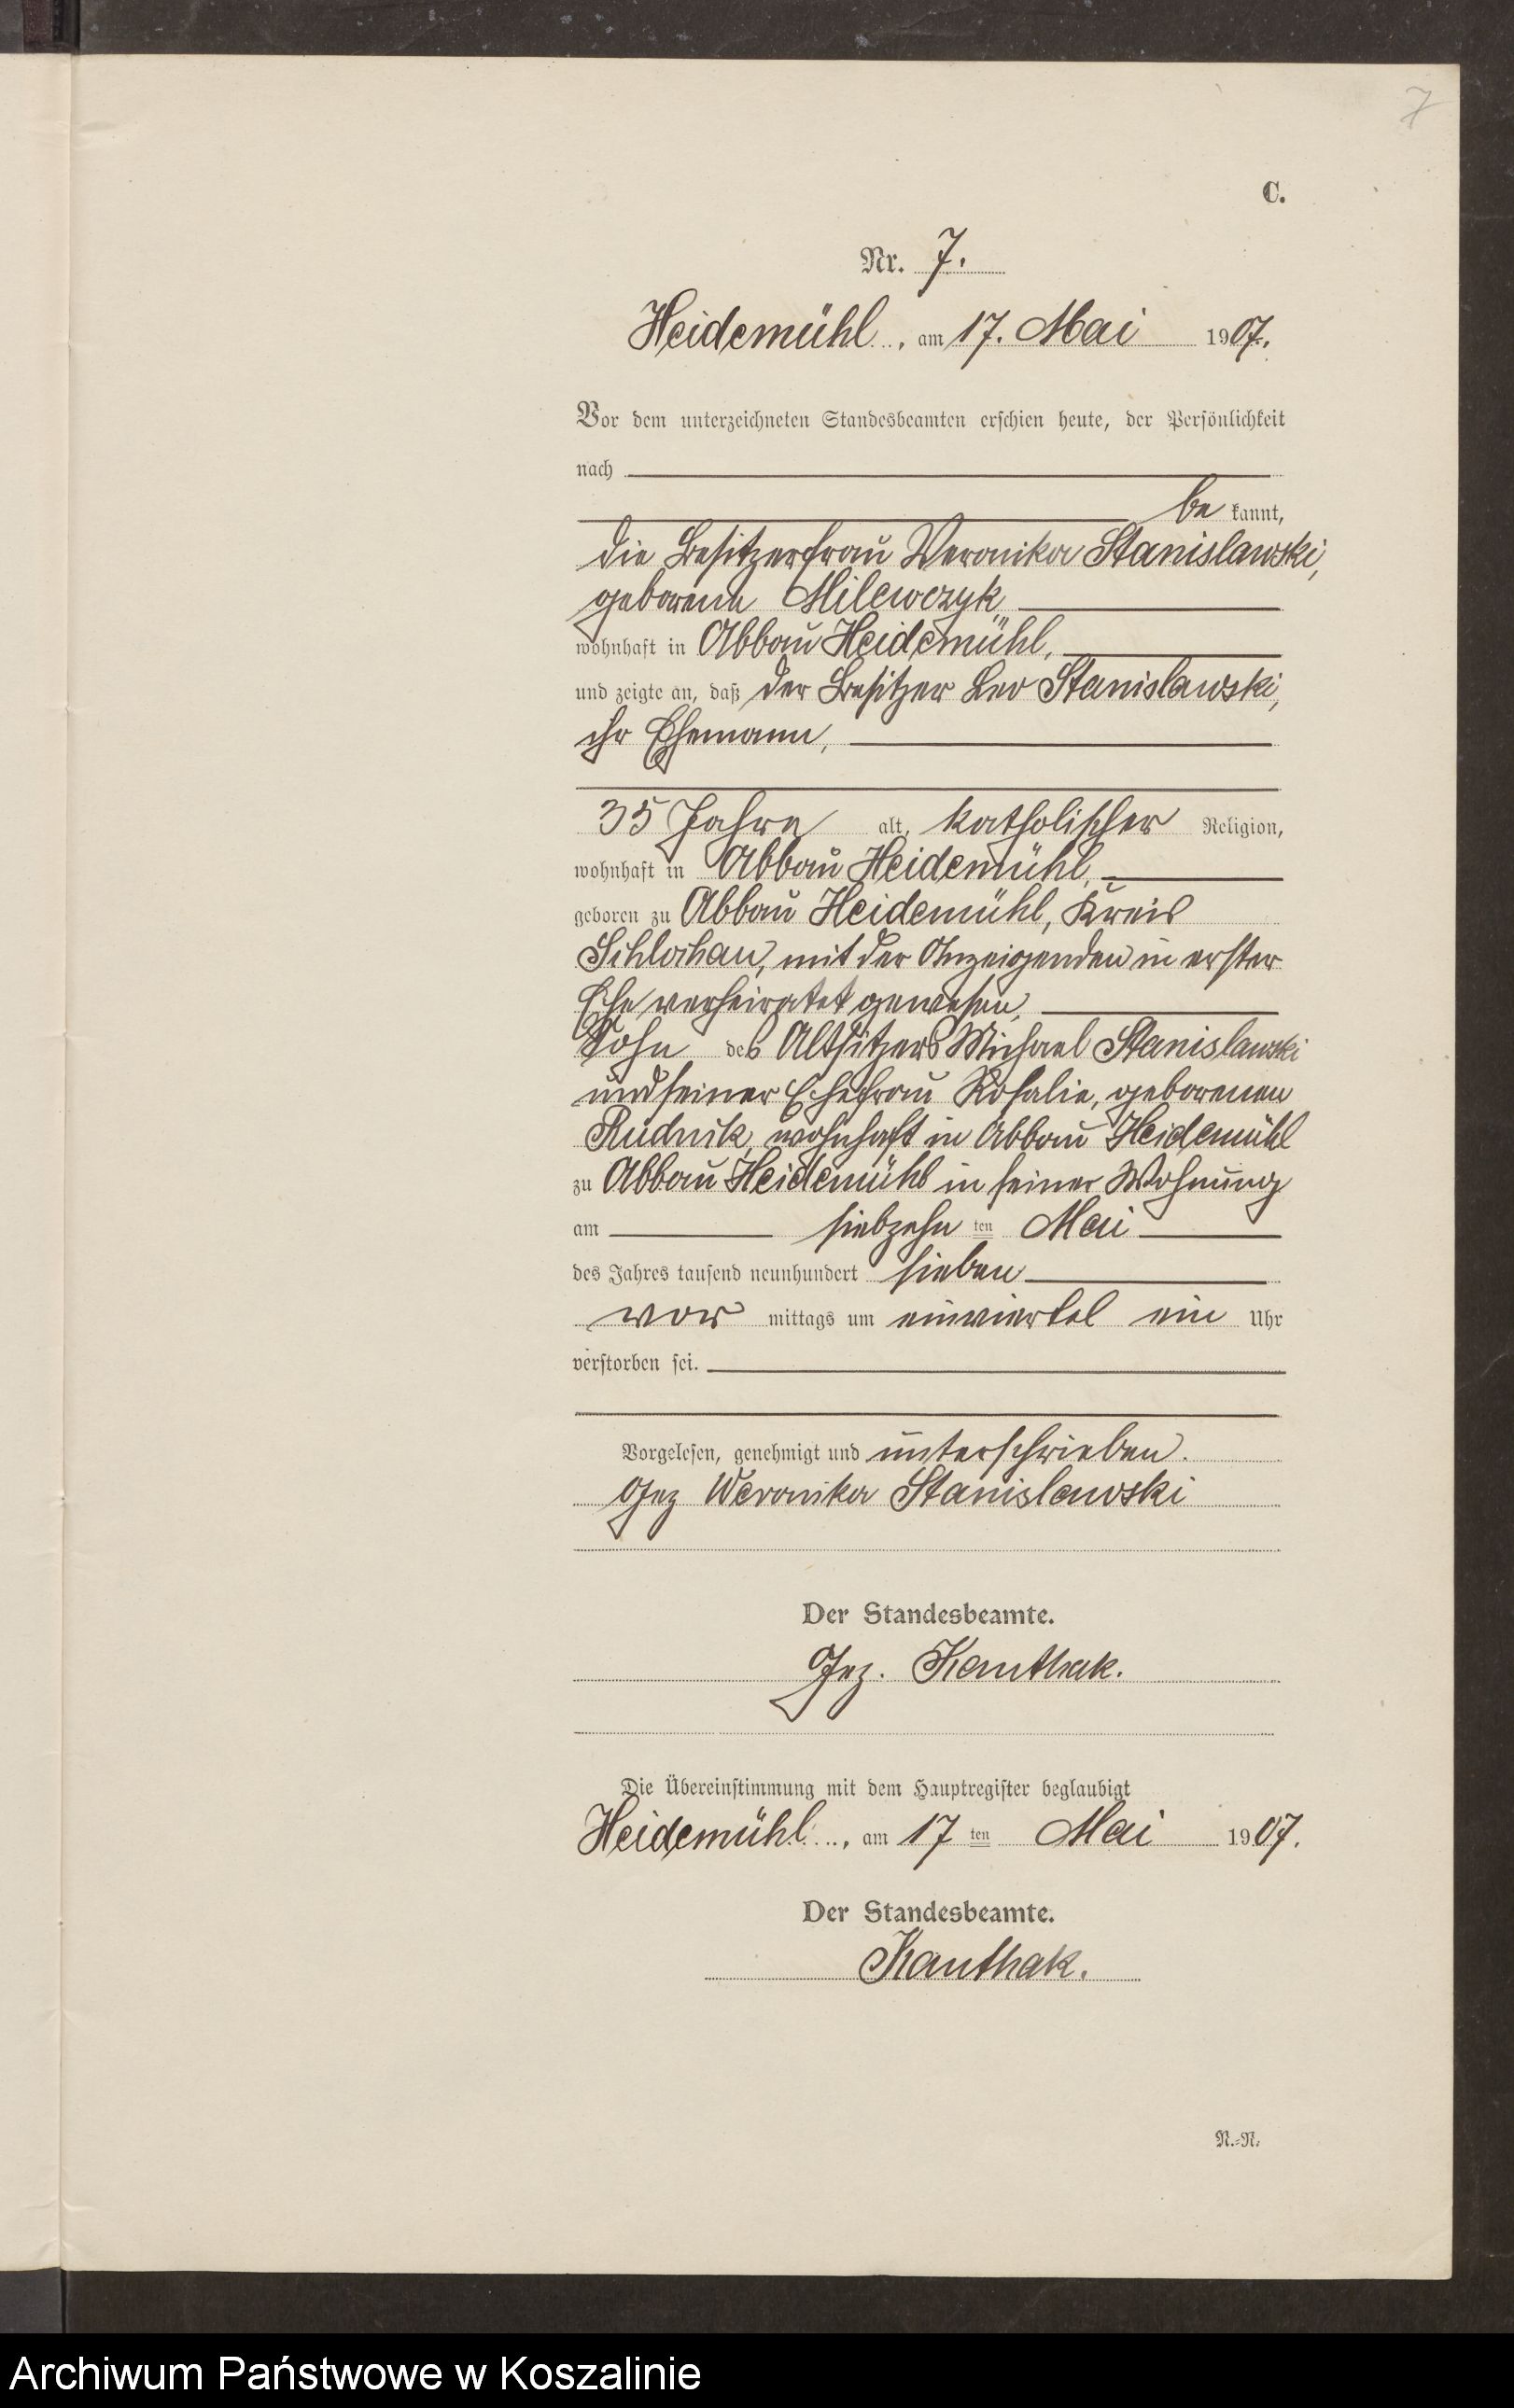 7
C.
Nr. 7.
Heidemühl, am 17. Mai 1907.
Vor dem unterzeichneten Standesbeamten erschien heute, der Persönlichkeit
nach
bekannt,
die Besitzerfrau Weronika Stanislawski,
geborene Milewczyk
wohnhaft in Abbau Heidemühl,
und zeigte an, daß der Besitzer Leo Stanislawski,
ihr Ehemann,
35 Jahre alt, katholischer Religion,
wohnhaft in Abbau Heidemühl,
geboren zu Abbau Heidemühl, Kreis
Schlochau, mit der Anzeigenden in erster
Ehe verheiratet gewesen,
Sohn des Altsitzers Michael Stanislawski
und seiner Ehefrau Rosalie, geborenen
Rudnik, wohnhaft in Abbau Heidemühl
zu Abbau Heidemühl in seiner Wohnung
am siebzehn ten Mai
des Jahres tausend neunhundert sieben
vor mittags um einviertel ein Uhr
verstorben sei.
Vorgelesen, genehmigt und unterschrieben.
Gez Weronika Stanislawski
Der Standesbeamte.
Gez. Kanthak.
Die Übereinstimmung mit dem Hauptregister beglaubigt
Heidemühl, am 17 ten Mai 1907.
Der Standesbeamte.
Kanthak.
N.=N.
Archiwum Państwowe w Koszalinie